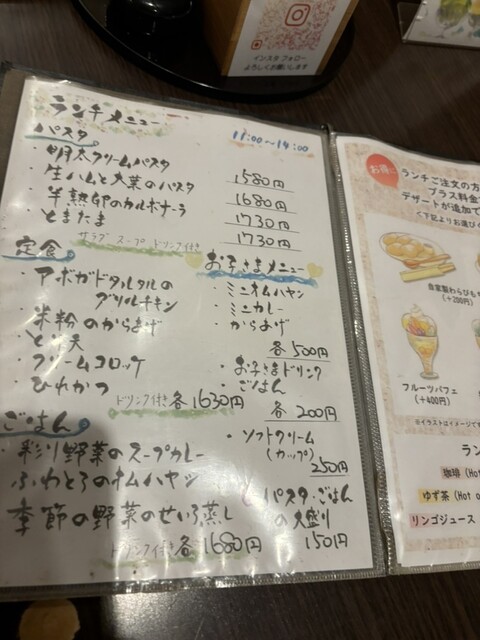 インスタ フォロー
よろしくお願いします
ランチメニュー
11:00～14:00
パスタ
・明太クリームパスタ 1580円
・生ハムと大葉のパスタ 1680円
・半熟卵のカルボナーラ 1730円
・とまたま 1730円
サラダ スープ ドリンク付き
定食
・アボガドタルタルの
グリルチキン
・米粉のからあげ
・とり天
・クリームコロッケ
・ひれかつ
ドリンク付き 各1630円
ごはん
・彩り野菜のスープカレー
ふわとろオムハヤシ
季節の野菜のせいろ蒸し
ドリンク付き 各1680円
お子さまメニュー
・ミニオムハヤシ
・ミニカレー
・からあげ
各500円
・お子さまドリンク
・ごはん
各200円
・ソフトクリーム
(カップ)
250円
パスタ・ごはん
の大盛り
150円
お得に
ランチご注文の方
プラス料金で
デザートが追加で
<下記よりお選びく
自家製わらびも
(+200円)
フルーツパフェ
(+400円)
※イラストはイメージで
ラン
珈琲 (Hot
ゆず茶 (Hot o
リンゴジュース